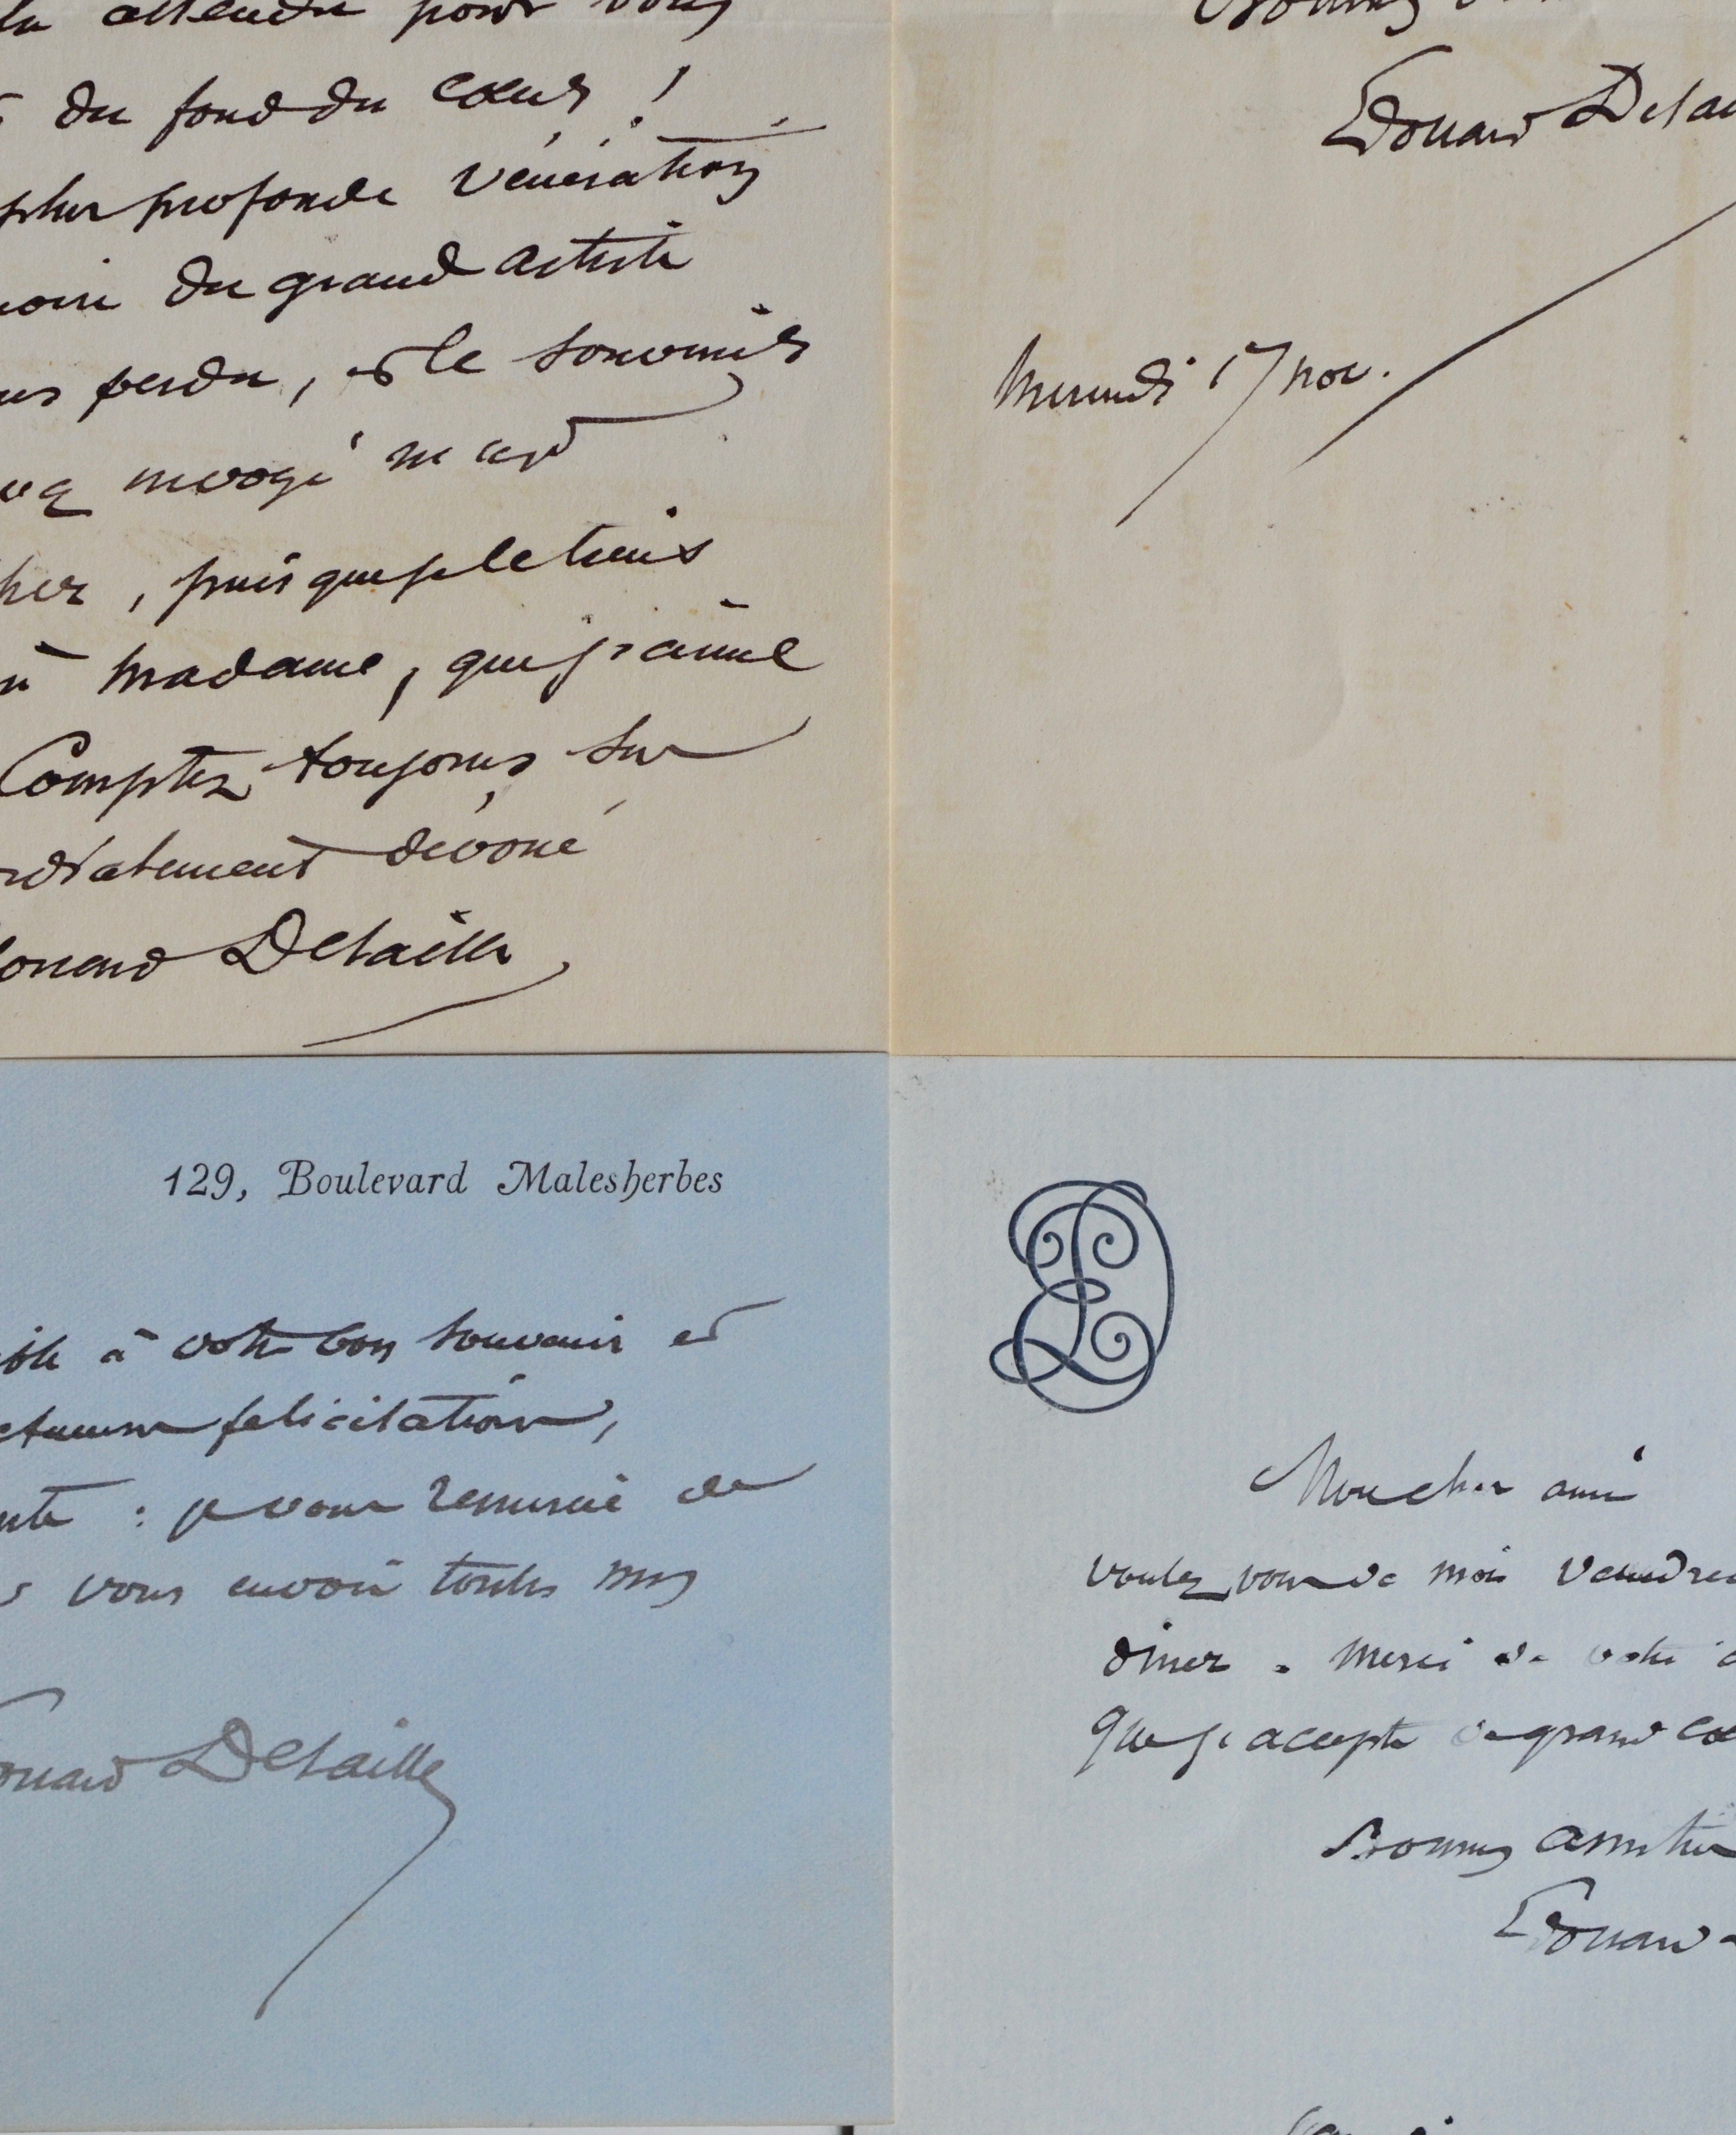 attendu pour vous
du fond du cœur !
plus profonde vénération
du grand artiste
perdu, et le souvenir
, puisque je le tiens
à madame, que j'aime
Comptez toujours sur
dévoué
Edouard Detaille
Edouard Detai
Mercredi 17 nov.
129, Boulevard Malesherbes
à votre bon souvenir et
félicitation,
: je vous remercie de
vous envoie toutes mes
Edouard Detaille
Mon cher ami
voulez vous de moi Vendredi
diner. Merci de votre
que j'accepte de grand cœ
Bonnes amitiés
Edouard